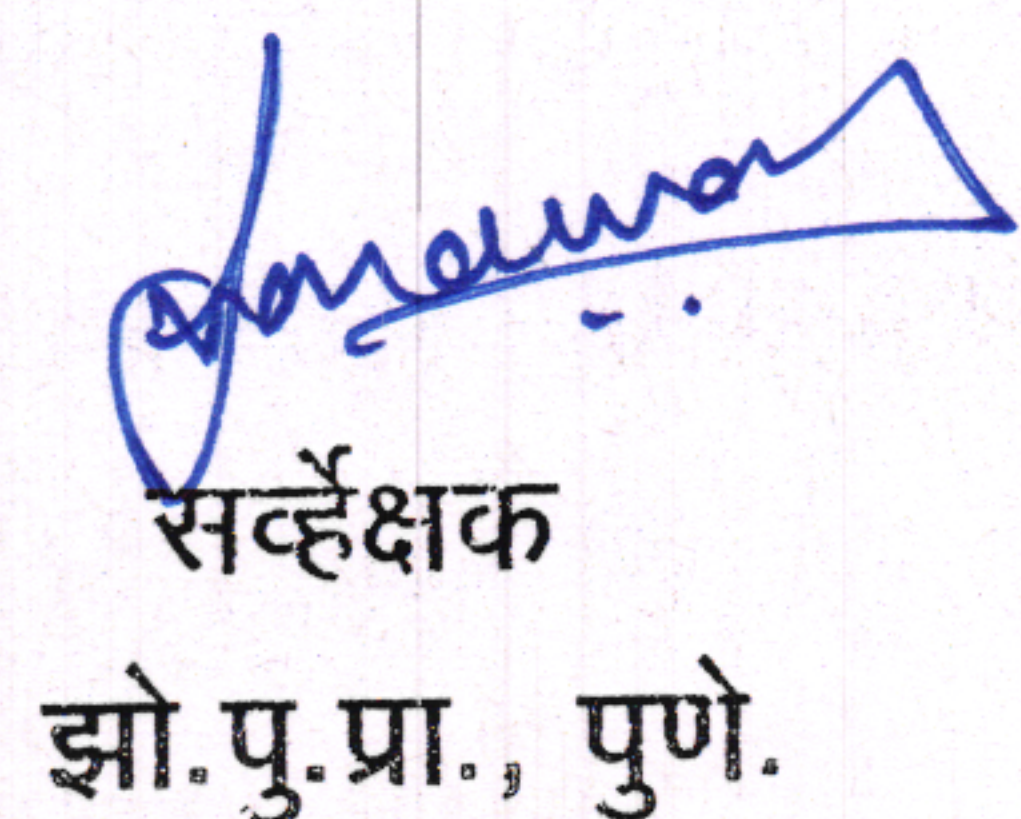 सर्व्हेक्षक
झो.पु.प्रा., पुणे.